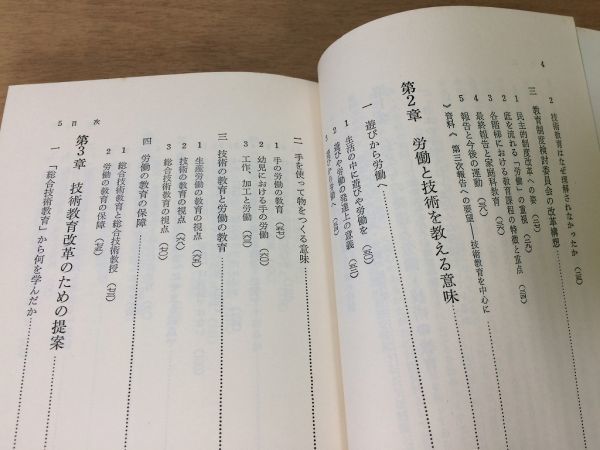 4
2 技術教育はなぜ理解されなかったか
三 教育制度検討委員会の改革構想
1 民主的制度改革への姿
2 底を流れる「労働」の重視
3 各階梯における教育課程の特徴と重点
4 最終報告と家庭科教育
5 報告と今後の運動
《資料》「第三次報告への要望——技術教育を中心に
第2章 労働と技術を教える意味
一 遊びから労働へ
1 生活の中に遊びや労働を
2 遊びや労働の発達上の意義
3 遊びから労働へ
5 目 次
二 手を使って物をつくる意味
1 手の労働の教育
2 幼児における手の労働
3 工作、加工と労働
三 技術の教育と労働の教育
1 生産労働の教育の視点
2 技術の教育の視点
3 総合技術教育の視点
四 労働の教育の保障
1 総合技術教育と総合技術教授
2 労働の教育の保障
第3章 技術教育改革のための提案
一 「総合技術教育」から何を学んだか